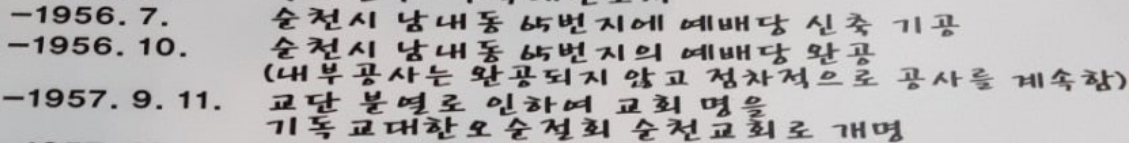 -1956. 7. 순천시 남내동 65번지에 예배당 신축 기공
-1956. 10. 순천시 남내동 65번지의 예배당 완공
(내부공사는 완공되지 않고 점차적으로 공사를 계속함)
-1957. 9. 11. 교단 분열로 인하여 교회 명을
기독교대한오순절회 순천교회로 개명